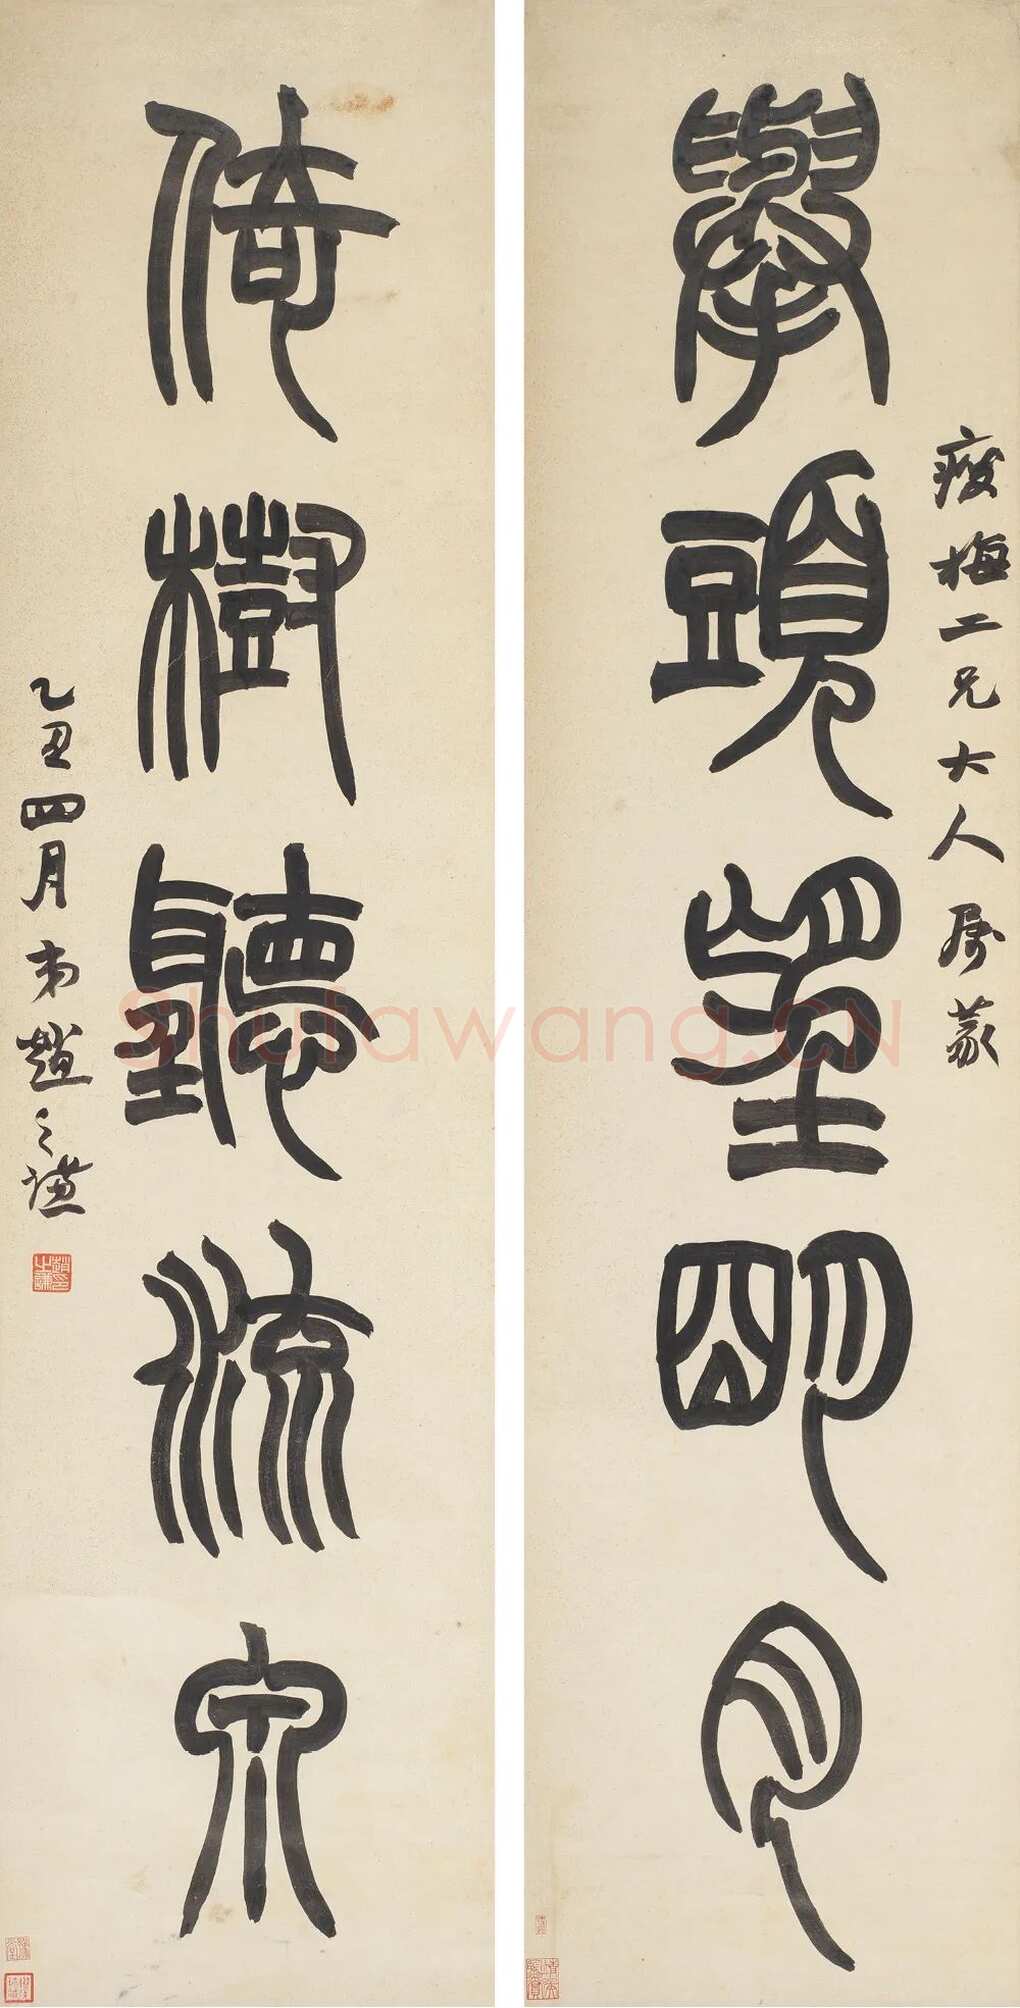 瘦梅二兄大人属篆
舉頭望明月
倚樹聽流泉
乙丑四月弟趙之謙
趙之謙印
Shufawang.CN